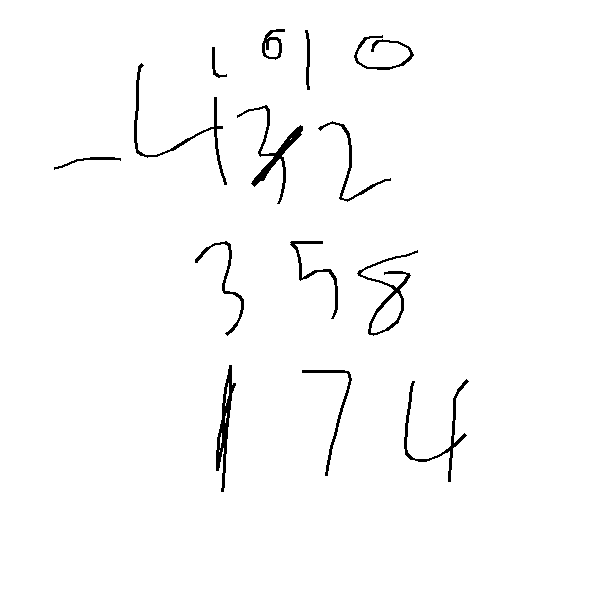 1 0 1 0
- 4 3 2
3 5 8
1 7 4